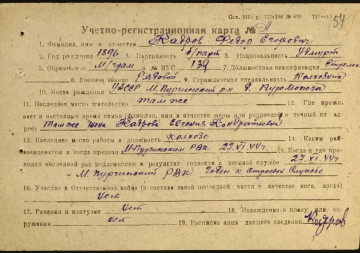 54
Учетно-регистрационная карта №
1. Фамилия, имя и отчество Кадров Федор Егорович
2. Год рождения 1896 3. Партийность б/парт 4. Национальность Удмурт
5. Образование М/грам 6. № ВУС 134 7. Должностная квалификация Стрелок
8. Воинское звание Рядовой 9. Гражданская специальность Колхозник
10. Место рождения УАССР М. Пургинский р-н д.
11. Последнее место жительства там же
12. Где прожи-
вает в настоящее время семья (фамилия, имя и отчество жены или родителей и точный их ад-
рес) Там же жена Кадрова Евгения Кондратьевна
13. Последнее место работы и должность колхоз
14. Каким рай-
военкоматом и когда призван М-Пургинским РВК 23.VI 44 г. 15. Когда и где про-
ходил последний раз медкомиссию и результат годности к военной службе 23.VI 44 г.
М. Пургинский РВК Годен к строевой службе
16. Участие в Отечественной войне (в составе какой последней части в качестве кого, когда)
Нет
17. Ранения и контузии Нет 18. Нахождение в плену или ок-
ружении нет 19. Расписка лица давшего сведения Кадров